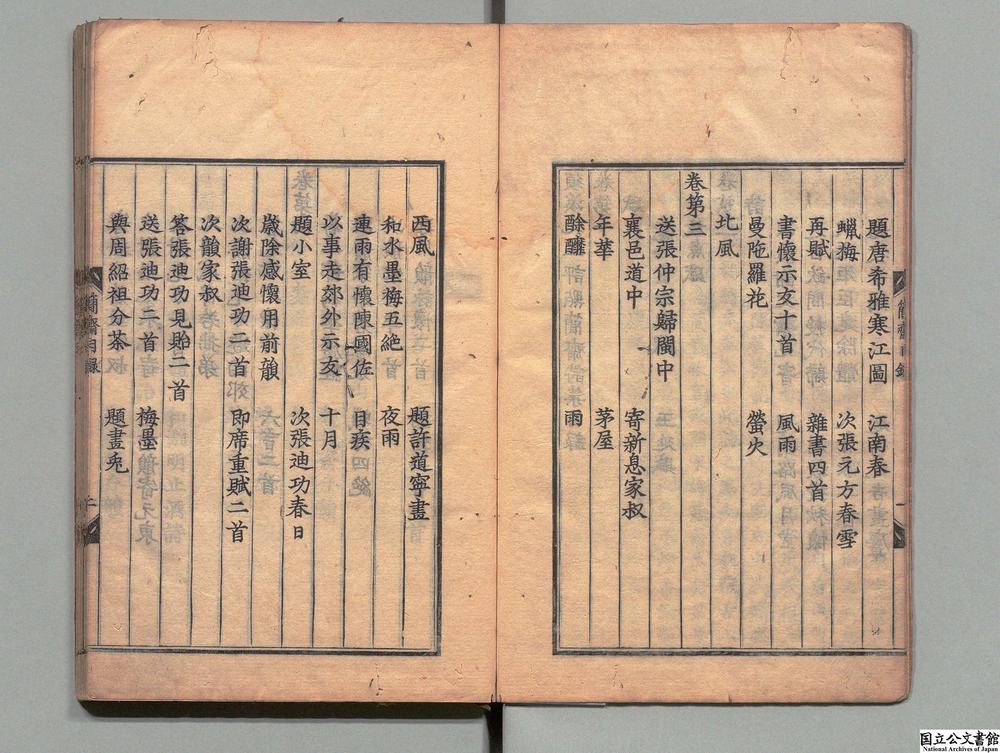 題唐希雅寒江圖 江南春
蠟梅 次張元方春雪
再賦 雜書四首
書懷示友十首 風雨
曼陁羅花 螢火
北風
卷第三
送張仲宗歸閩中
襄邑道中 寄新息家叔
年華 茅屋
酴醿 雨
西風 題許道寧畫
和水墨梅五絶 夜雨
連雨有懷陳國佐 目疾
以事走郊外示友 十月
題小室 次張迪功春日
歲除感懷用前韻
次謝張迪功二首 即席重賦二首
次韻家叔
答張迪功見貽二首
送張迪功二首 梅墨
與周紹祖分茶 題畫兎
簡齋目録
国立公文書館
National Archives of Japan